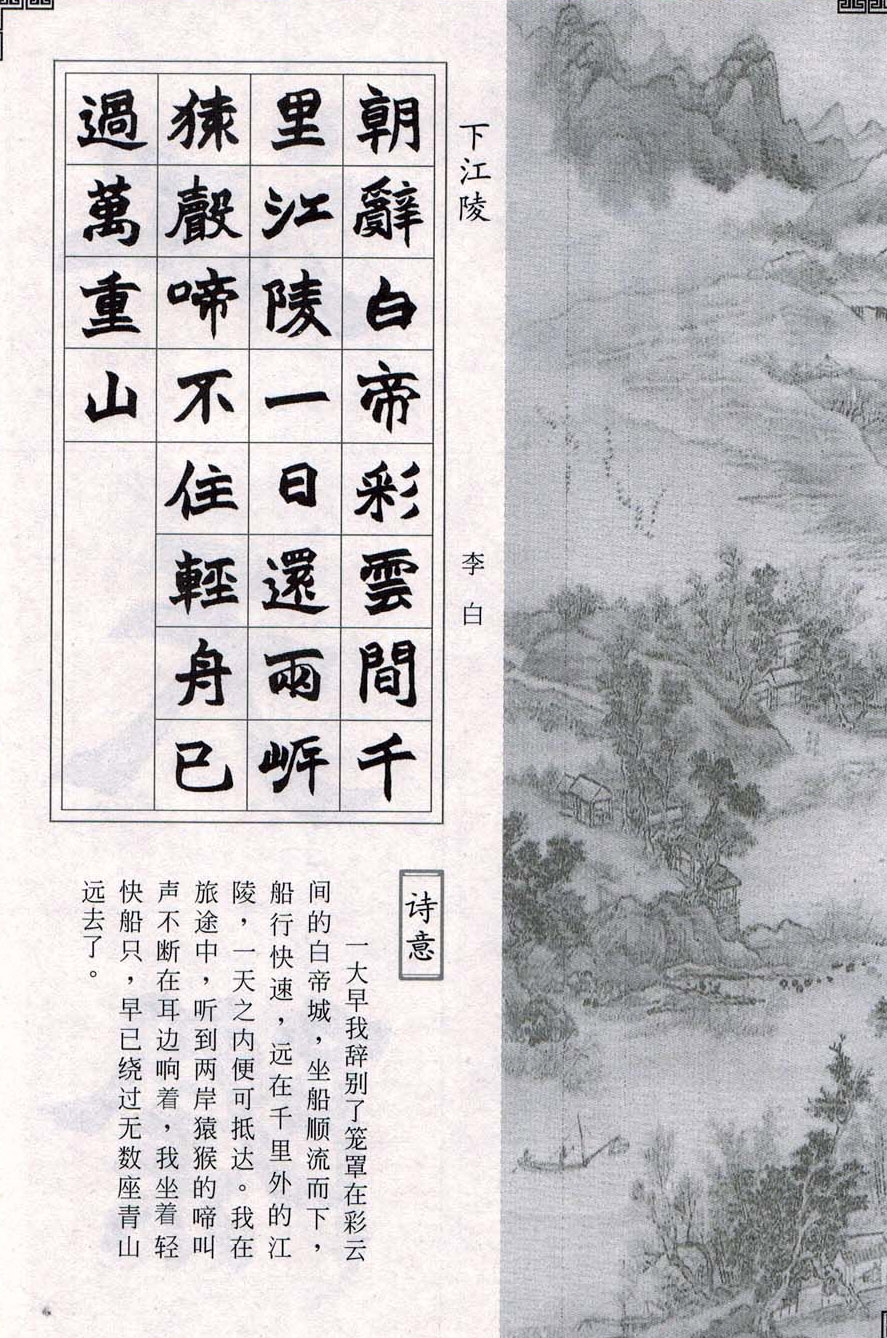 下江陵
李白
朝辭白帝彩雲間千
里江陵一日還兩岸
猿聲啼不住輕舟已
過萬重山
诗意
一大早我辞别了笼罩在彩云
间的白帝城，坐船顺流而下，
船行快速，远在千里外的江
陵，一天之内便可抵达。我在
旅途中，听到两岸猿猴的啼叫
声不断在耳边响着，我坐着轻
快船只，早已绕过无数座青山
远去了。